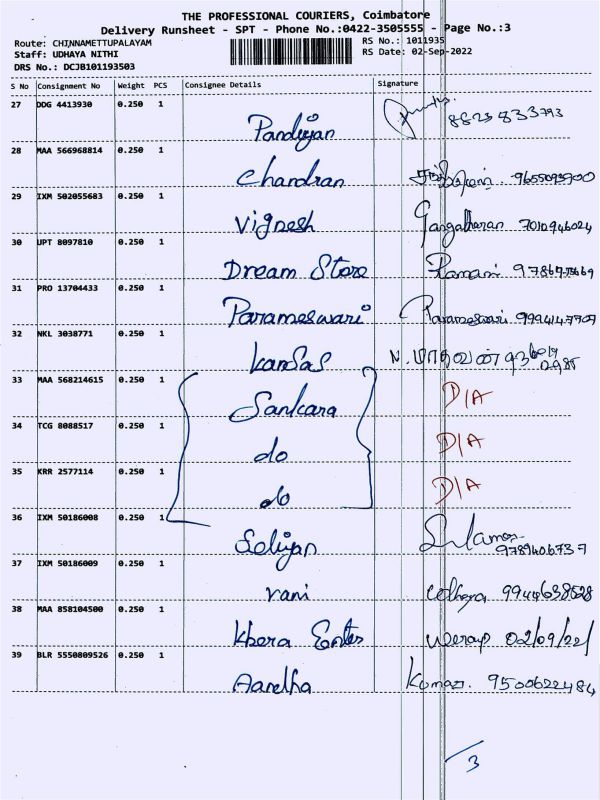 THE PROFESSIONAL COURIERS, Coimbatore
Delivery Runsheet - SPT - Phone No.:0422-3505555 - Page No.:3
Route: CHINNAMETTUPALAYAM RS No.: 1011935
Staff: UDHAYA NITHI RS Date: 02-Sep-2022
DRS No.: DCJB101193503
S No Consignment No Weight PCS Consignee Details Signature
27 DDG 4413930 0.250 1
Pandiyan
28 MAA 566968814 0.250 1
Chandran 9655093900
29 IXM 502055683 0.250 1
Vignesh Gangatharan 7010946024
30 UPT 8097810 0.250 1
Dream Store Ramani
31 PRO 13704433 0.250 1
Parameswari Parameswari 9994147707
32 NKL 3038771 0.250 1
Kandas N. மாதவன்
33 MAA 568214615 0.250 1
Sankara D/A
34 TCG 8088517 0.250 1
do D/A
35 KRR 2577114 0.250 1
do D/A
36 IXM 50186008 0.250 1
Seliyan 9789406737
37 IXM 50186009 0.250 1
vani 9944638528
38 MAA 858104500 0.250 1
Khera Enter 02/09/22
39 BLR 5550809526 0.250 1
Aaredha Kumar. 9500622484
3